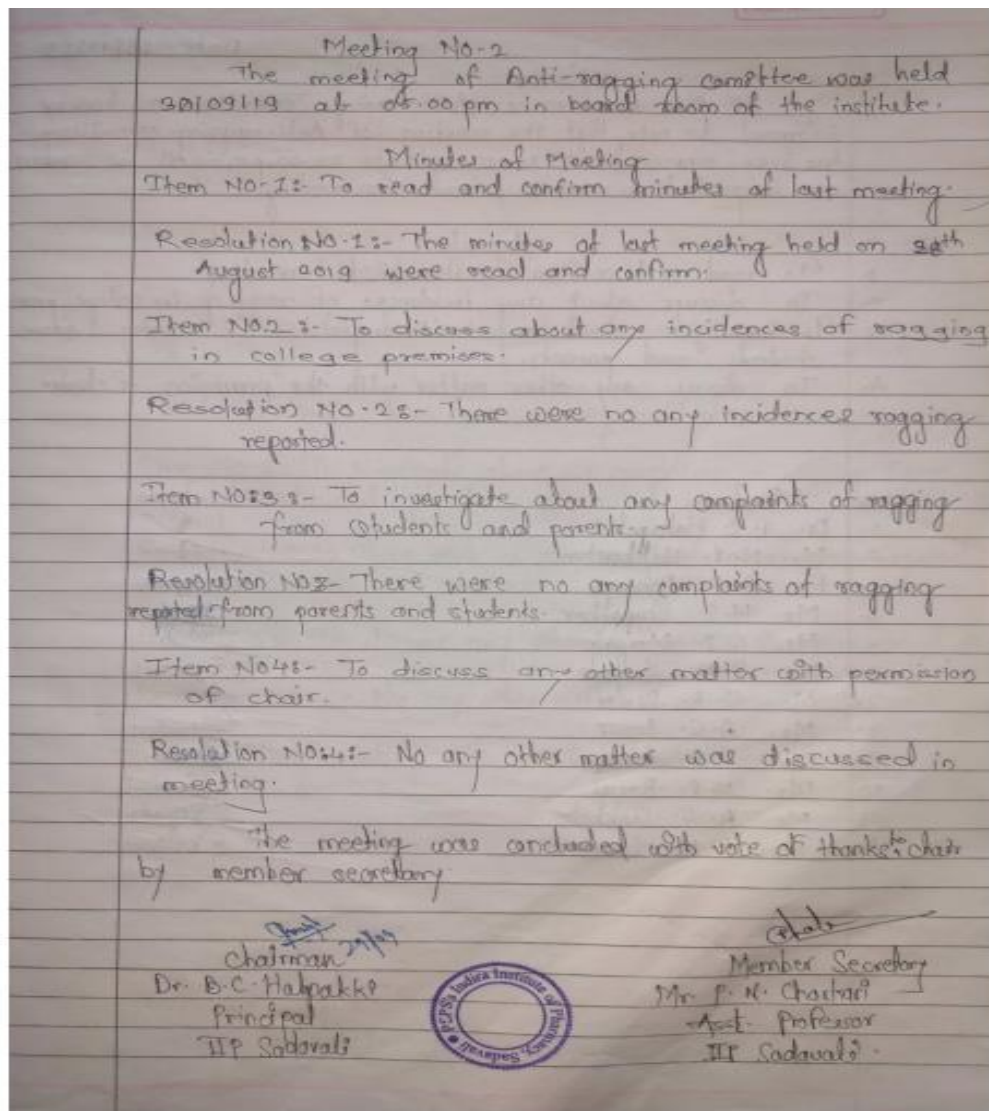 Meeting No-2
The meeting of Anti-ragging comittee was held
30/09/19 at 05.00 pm in board room of the institute.
Minutes of Meeting
Item NO-1:- To read and confirm minutes of last meeting.
Resolution NO.1:- The minutes of last meeting held on
August 2019 were read and confirm.
Item NO.2:- To discuss about any incidences of ragging
in college premises.
Resolution NO.2:- There were no any incidences ragging
reported.
Item NO:3:- To investigate about any complaints of ragging
from students and parents.
Resolution NO3- There were no any complaints of ragging
reported from parents and students.
Item NO4:- To discuss any other matter with permission
of chair.
Resolution NO:4:- No any other matter was discussed in
meeting.
The meeting was concluded with vote of thanks to chair
by member secretary
29/09
Chairman
Member Secretary
Dr. B.C. Hatpakki
Mr. P. N.
Principal
Asst. Professor
IIP Sadavali
IIP Sadavali.
PCPS's Indira Institute of Pharmacy, Sadavali